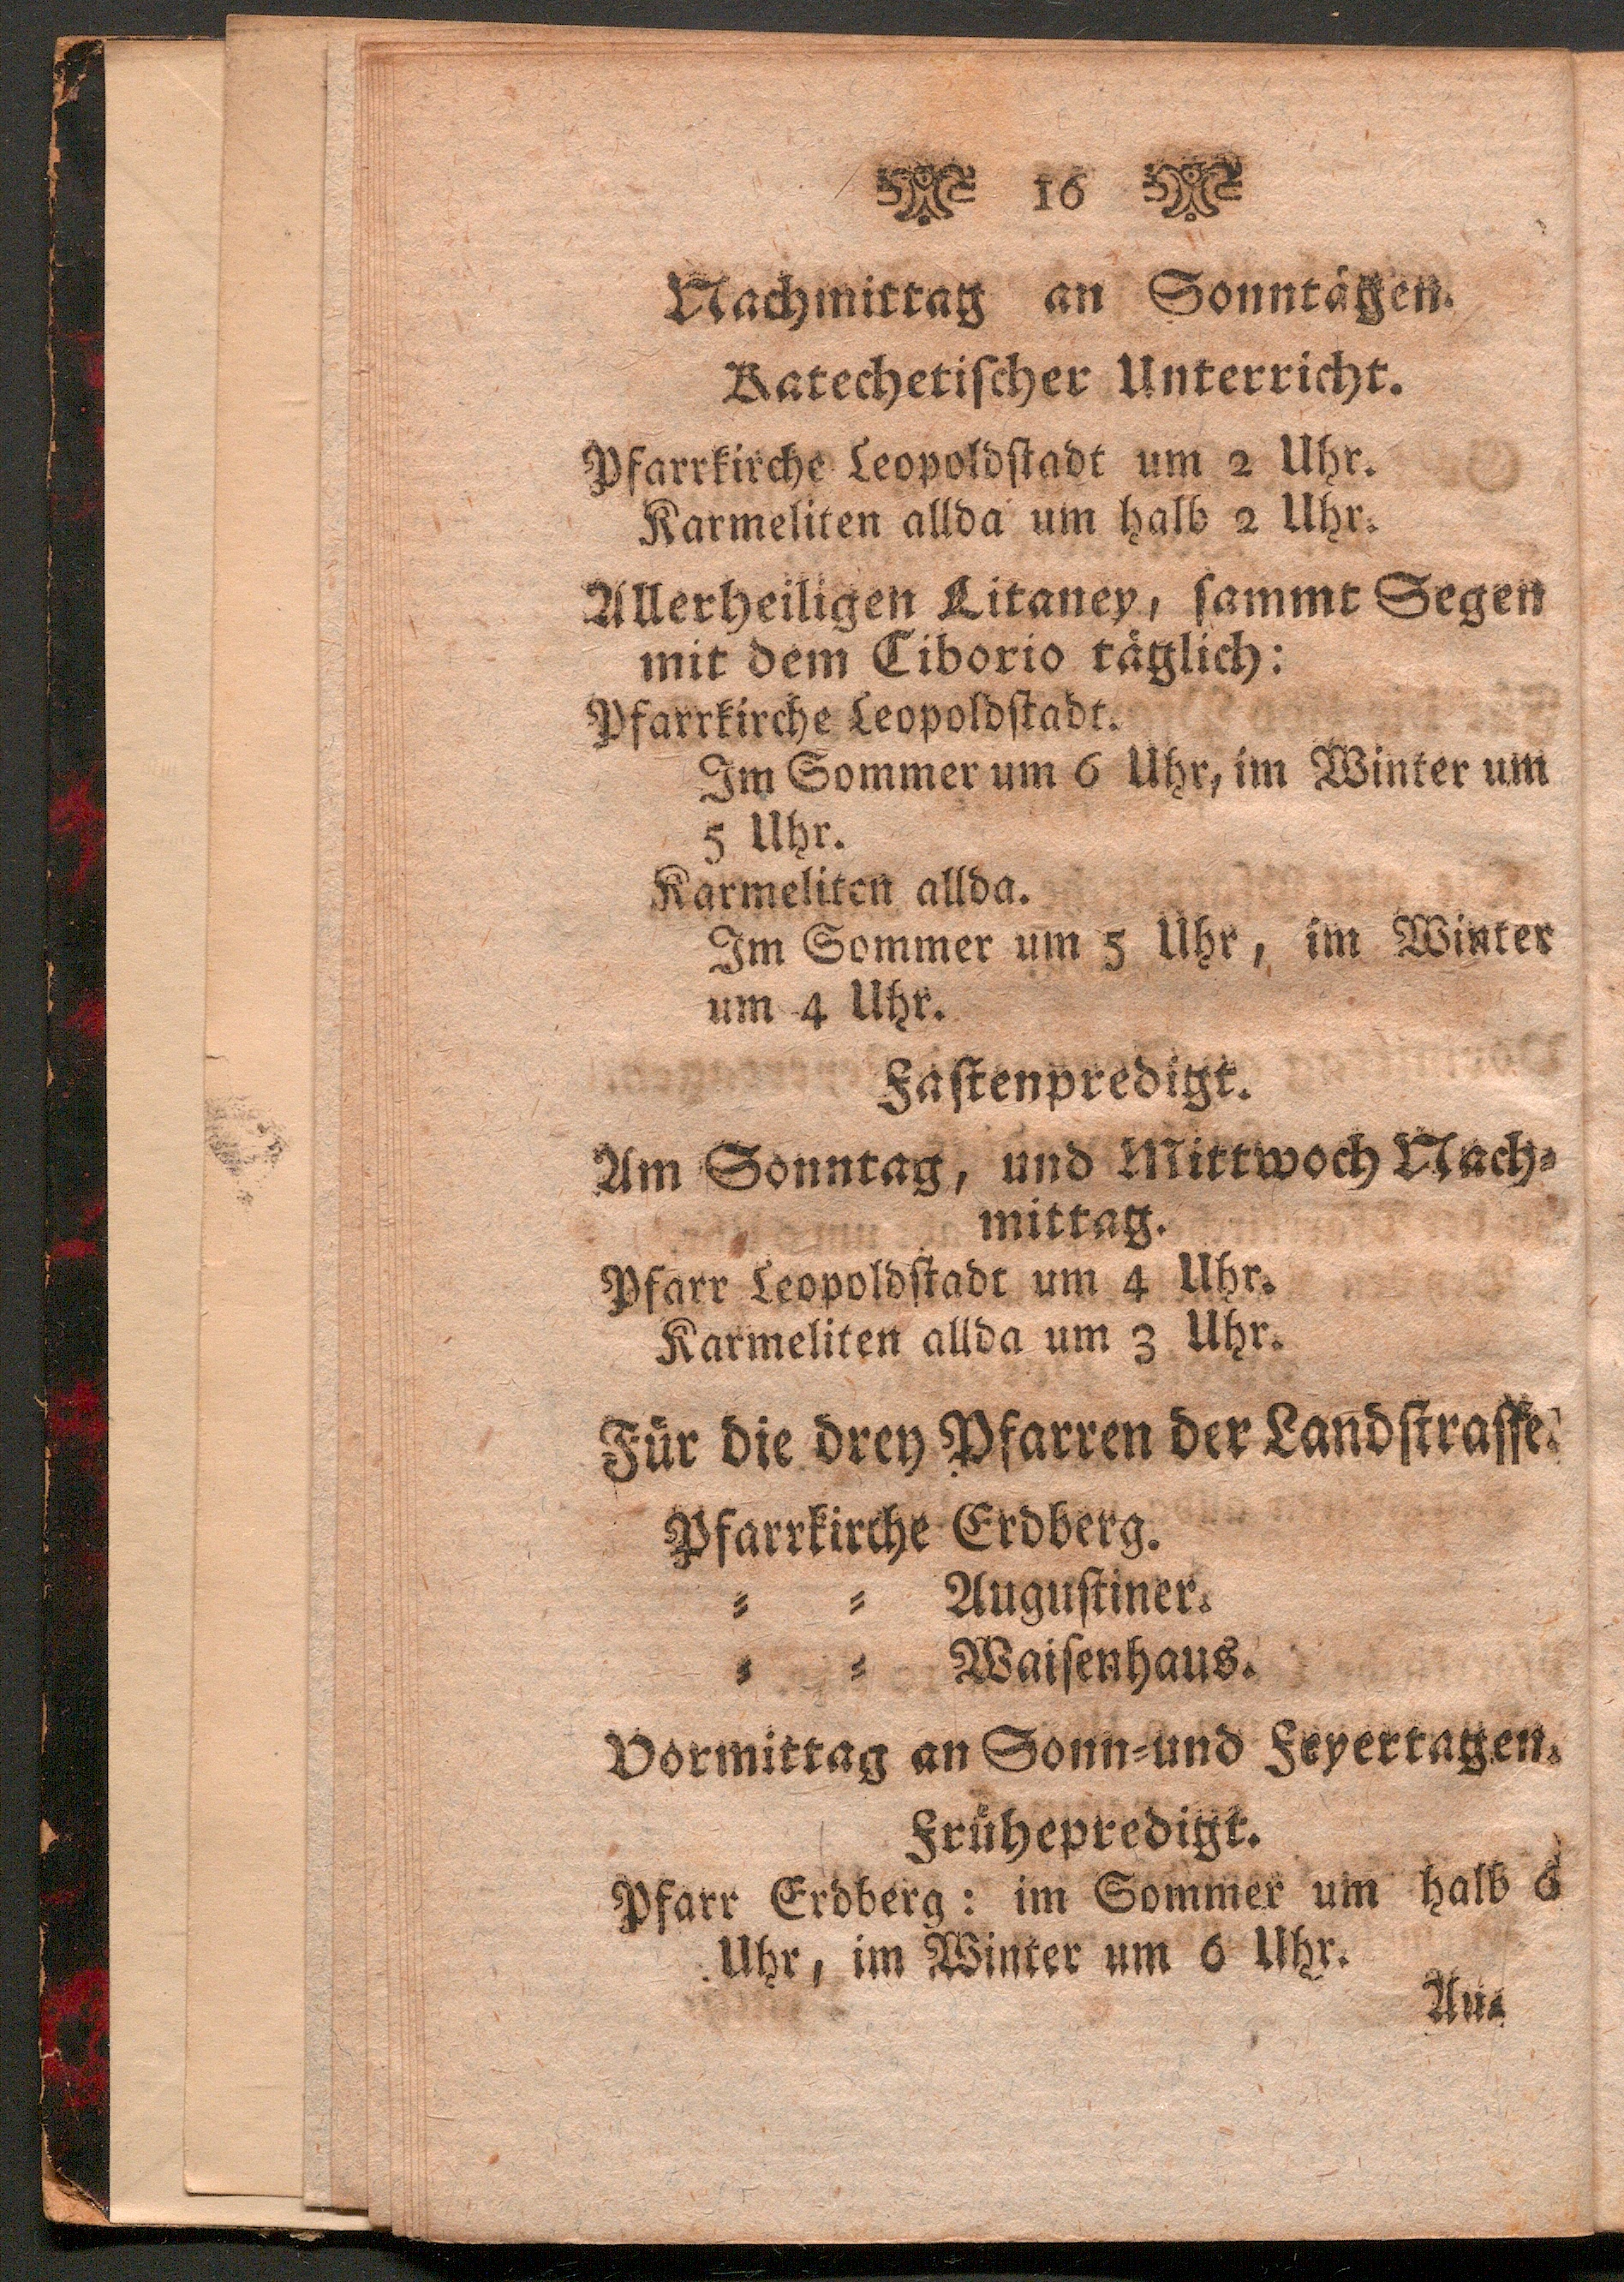 16
Nachmittag an Sonntägen.
Katechetischer Unterricht.
Pfarrkirche Leopoldstadt um 2 Uhr.
Karmeliten allda um halb 2 Uhr.
Allerheiligen Litaney, sammt Segen
mit dem Ciborio täglich:
Pfarrkirche Leopoldstadt.
Im Sommer um 6 Uhr, im Winter um
5 Uhr.
Karmeliten allda.
Im Sommer um 5 Uhr, im Winter
um 4 Uhr.
Fastenpredigt.
Am Sonntag, und Mittwoch Nach⸗
mittag.
Pfarr Leopoldstadt um 4 Uhr.
Karmeliten allda um 3 Uhr.
Für die drey Pfarren der Landstrasse.
Pfarrkirche Erdberg.
⸗ ⸗ Augustiner.
⸗ ⸗ Waisenhaus.
Vormittag an Sonn⸗und Feyertagen.
Frühepredigt.
Pfarr Erdberg: im Sommer um halb 6
Uhr, im Winter um 6 Uhr.
Au⸗